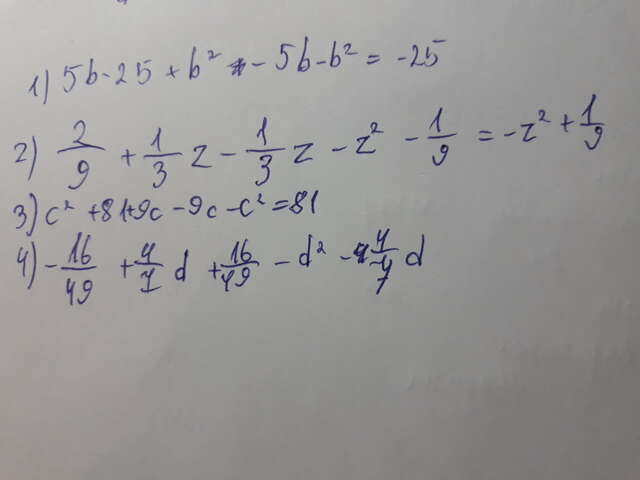 1) 5b - 25 + b² - 5b - b² = -25
2) 2/9 + 1/3 z - 1/3 z - z² - 1/9 = -z² + 1/9
3) c² + 81 + 9c - 9c - c² = 81
4) - 16/49 + 4/7 d + 16/49 - d² - d